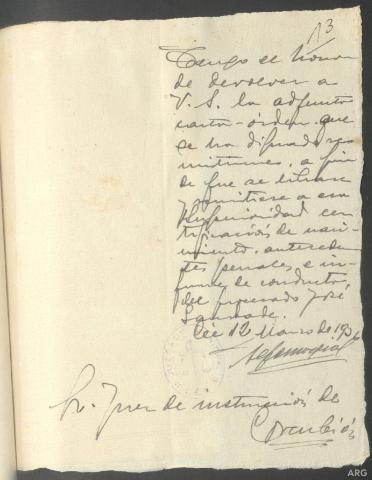 13
Tengo el honor
de devolver a
V. S. la adjunta
carta-órden que
se ha dignado re
mitirme, a fin
de que se librase
y remitiese a esa
Superioridad cer
tificación de naci
miento, anteceden
tes penales e in
forme de conducta
del procesado José
Lavado.
Cée 12 Marzo de 193
Sr. Juez de instrucción de
Corcubión
ARG